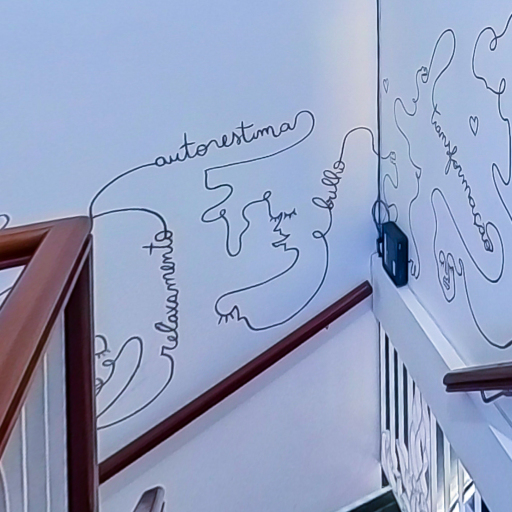 autorestima
relaxamento
bulho
transformação